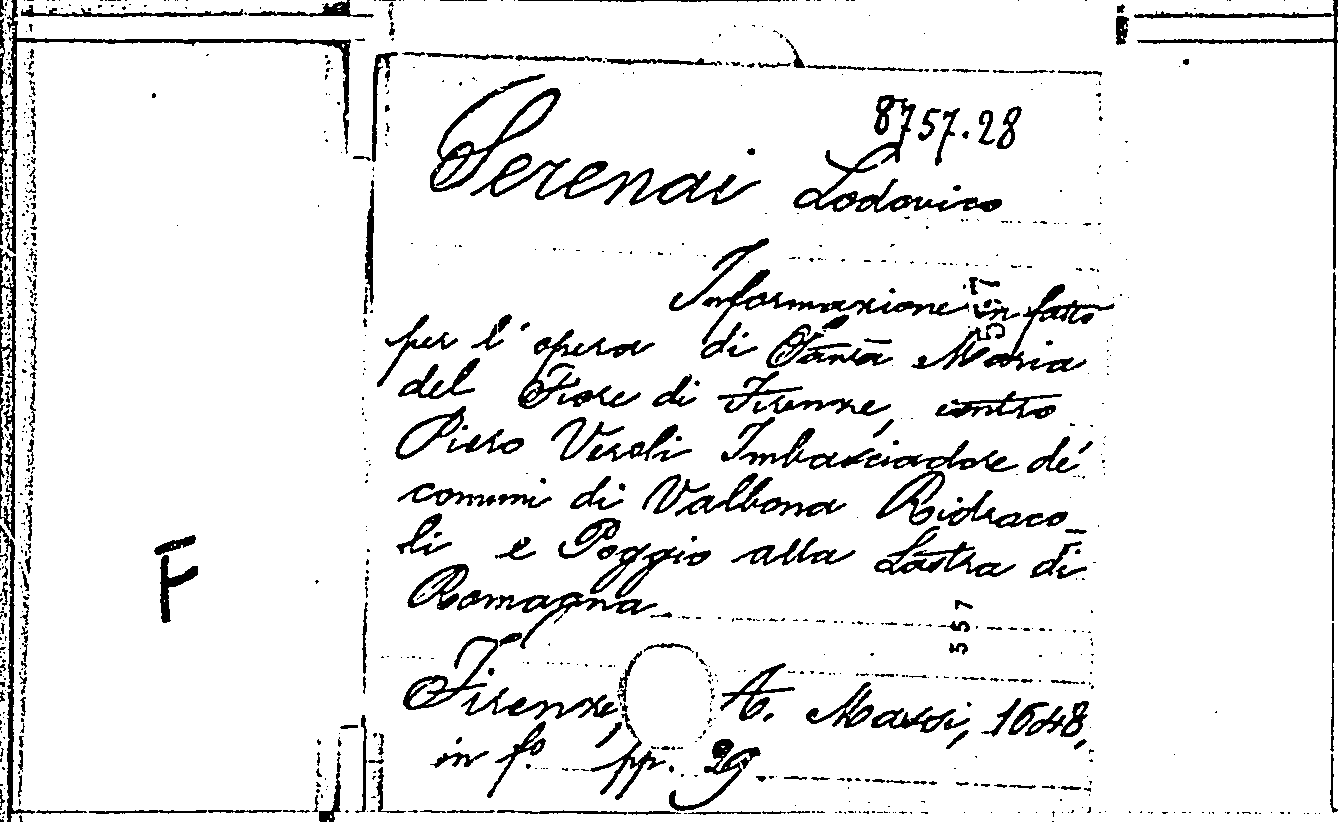 8757.28
Serenai Lodovico
Informazione in fatto
per l'opera di Santa Maria
del Fiore di Firenze, contro
Piero Veroli Imbasciadore de'
comuni di Valbona Ridraco-
li e Poggio alla Lastra di
Romagna
Firenze, A. Massi, 1648,
in f.º pp. 29
557
557
F